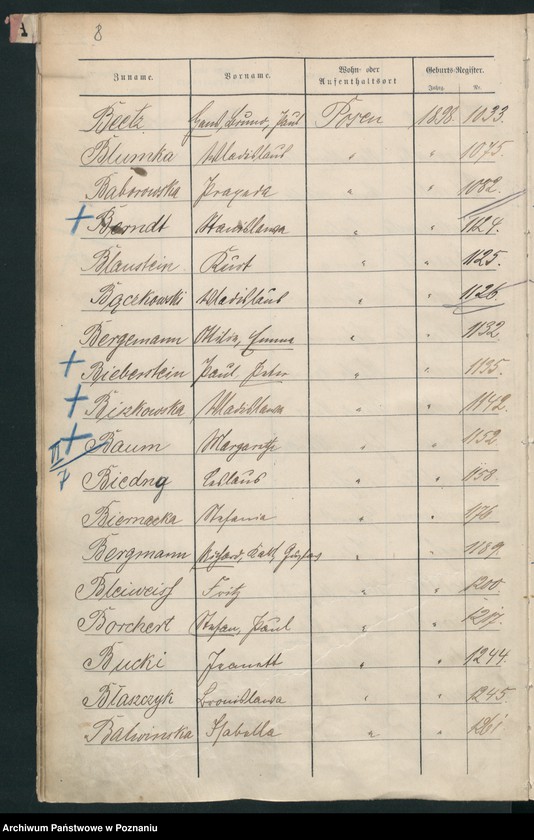 A
8
Zuname. Vorname. Wohn- oder Aufenthaltsort Geburts-Register.
Jahrg. Nr.
Beetz Paul Posen 1898 1033.
Blumka Wladislaus " " 1075.
Baborowska Praxeda " " 1082.
Berndt Stanislawa " " 1124.
Blaustein Kurt " " 1125.
Bączkowski Wladislaus " " 1126.
Bergemann Emma " " 1132
Bieberstein Paul Peter " " 1135.
Biskowska Wladislawa " " 1142.
II Baum Margarethe " " 1152
Biedny Ceslaus " " 1158.
Biernacka Stefania " " 1176
Bergmann Richard, Karl, Gustav " " 1189
Bleiweiss Fritz " " 1200.
Borchert Stefan, Paul " "
Bucki Jeanett " " 1244.
Błaszczyk Bronislawa " " 1245.
Balwinska Isabella " " 1261
Archiwum Państwowe w Poznaniu